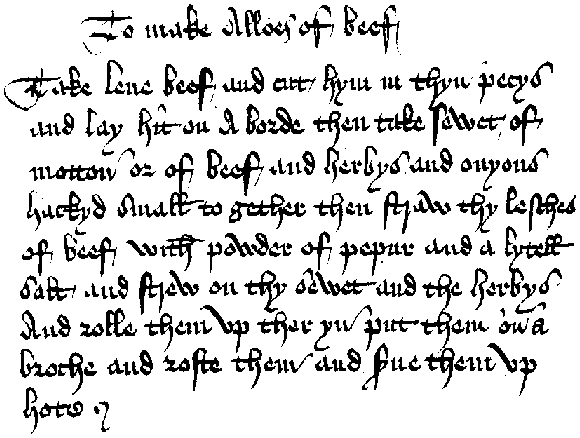 To make Alloes of beef
Take lene beef and cut hym in thyn pecys
and lay hit on A borde then take sewet of
motton or of beef and herbys and onyons
hackyd small to gether then straw thy lesches
of beef with powder of pepur and a lytell
salt and strew on thy sewet and the herbys
And rolle them vp ther yn put them on a
broche and roste them and serue them vp
hote